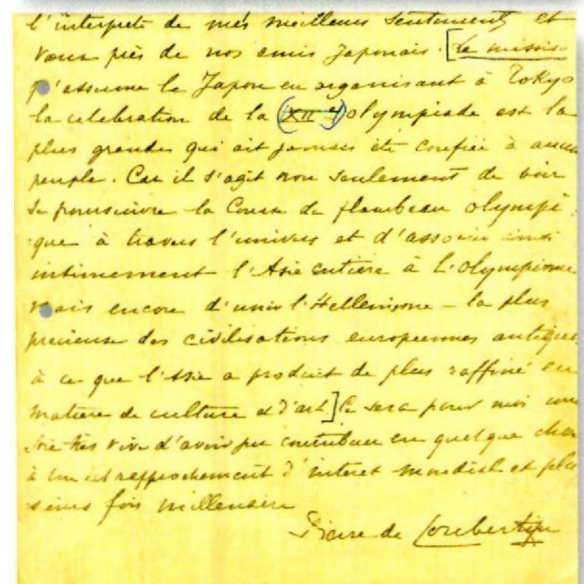 l'interprète de mes meilleurs sentiments et
vœux près de nos amis japonais. [La mission
qu'assume le Japon en organisant à Tokyo
la celebration de la (XIIe) olympiade est la
plus grande qui ait jamais été confiée à aucun
peuple. Car il s'agit non seulement de voir
se poursuivre la Course du flambeau olympi
que à travers l'univers et d'associer ainsi
intimement l'Asie entière à l'olympisme
mais encore d'unir l'Hellenisme — la plus
precieuse des civilisations europeennes antiques
à ce que l'Asie a produit de plus raffiné en
matière de culture et d'art.] Ce sera pour moi une
joie très vive d'avoir pu contribuer en quelque chose
à un tel rapprochement d'interet mondial et plu
sieurs fois millenaire
Pierre de Coubertin